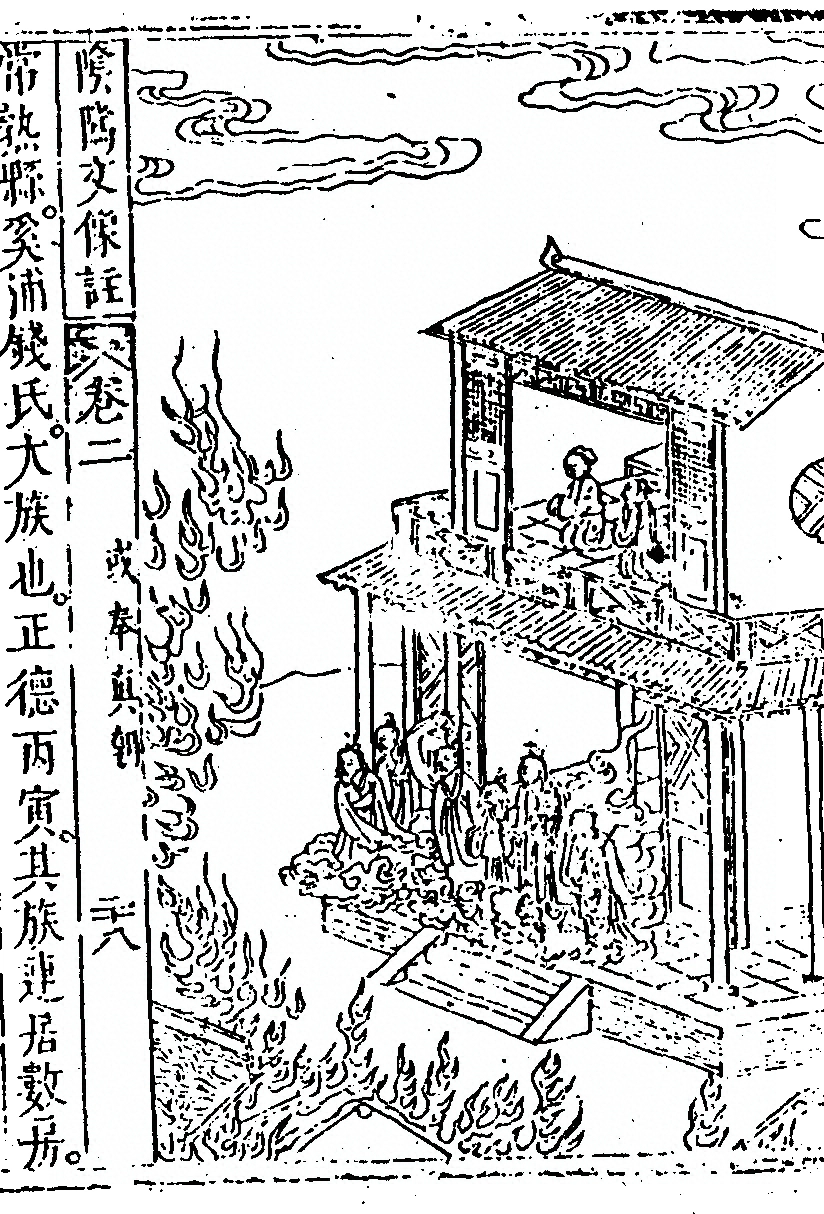 陰隲文像註
卷二
或奉真朝
常熟縣。奚浦錢氏。大族也。正德丙寅。其族連居數房。